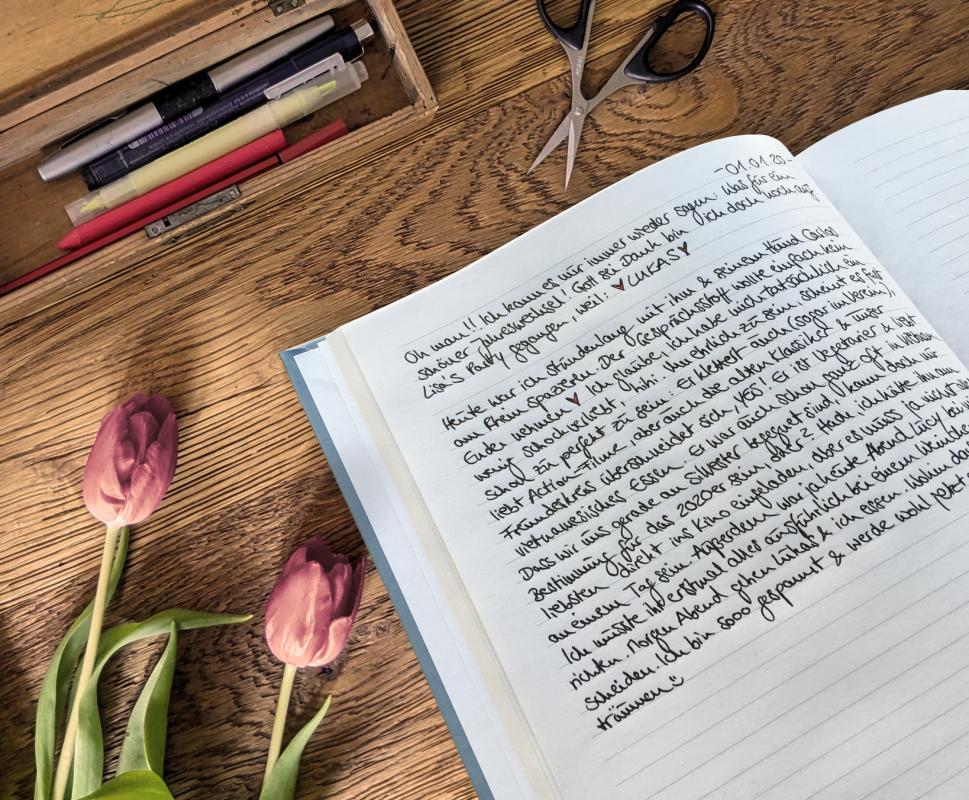 -01.01.20-
Oh man!! Ich kann es nur immer wieder sagen: Was für ein
schöner Jahreswechsel! Gott sei Dank bin ich doch noch auf
Lisas Party gegangen, weil: LUKAS
Heute war ich stundenlang mit ihm & seinem Hund Casino
am Rhein spazieren. Der Gesprächsstoff wollte einfach kein
Ende nehmen Ich glaube, ich habe mich tatsächlich ein
wenig schockverliebt, hihi. Um ehrlich zu sein, scheint es fast
schon zu perfekt zu sein: Er klettert auch (sogar im Verein),
liebt Action-Filme, aber auch die alten Klassiker & unser
Freundeskreis überschneidet sich, YES! Er ist Vegetarier & liebt
vietnamesisches Essen. Er war auch schon ganz oft in
Dass wir uns gerade an Silvester begegnet sind, kann doch nur
Bestimmung für das 2020er sein, oder? Heute, ich hätte ihn am
liebsten direkt ins Kino eingeladen, aber es muss ja nicht alles
an einem Tag sein. Außerdem war ja heute Abend Lucy bei mir
Ich musste ihr erstmal alles ausführlich bei einem
richten. Morgen Abend gehen Lukas & ich essen. Wohin
scheiden. Ich bin sooo gespannt & werde wohl jetzt
träumen